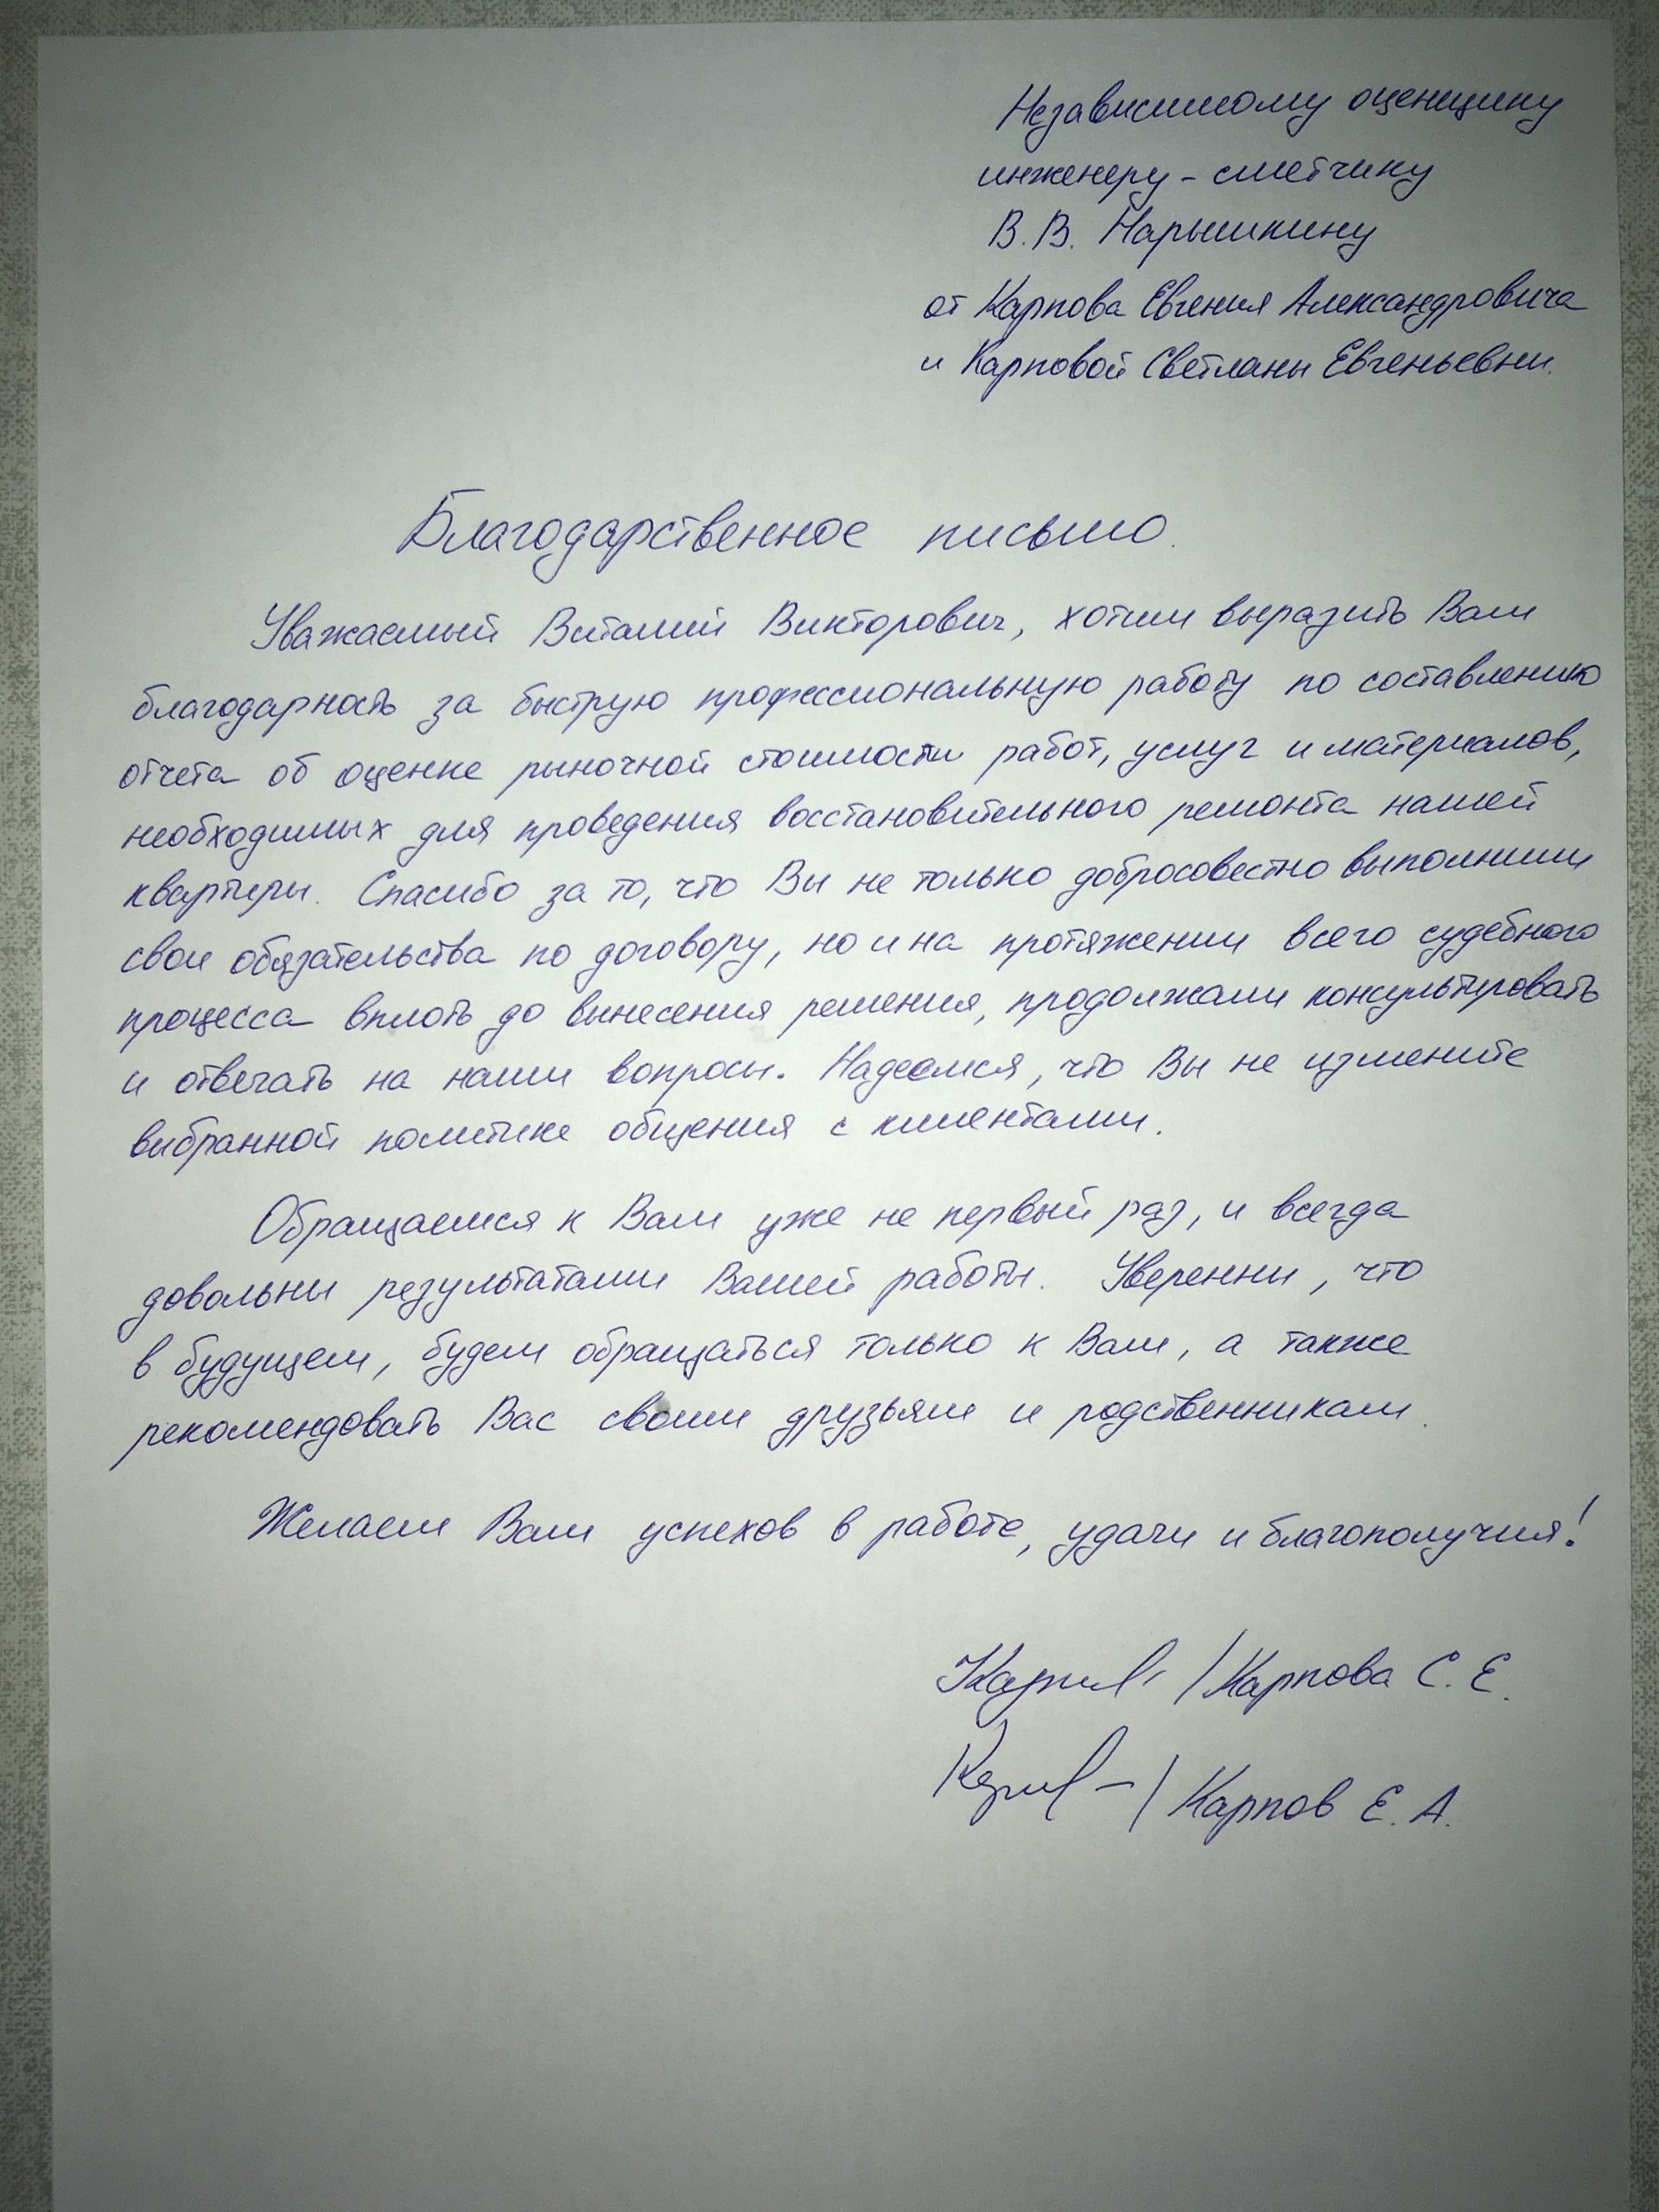 Независимому оценщику
инженеру - сметчику
В. В. Нарышкину
от Карпова Евгения Александровича
и Карповой Светланы Евгеньевны.
Благодарственное письмо.
Уважаемый Виталий Викторович, хотим выразить Вам
благодарность за быструю профессиональную работу по составлению
отчета об оценке рыночной стоимости работ, услуг и материалов,
необходимых для проведения восстановительного ремонта нашей
квартиры. Спасибо за то, что Вы не только добросовестно выполнили
свои обязательства по договору, но и на протяжении всего судебного
процесса вплоть до вынесения решения, продолжали консультировать
и отвечать на наши вопросы. Надеемся, что Вы не измените
выбранной политике общения с клиентами.
Обращаемся к Вам уже не первый раз, и всегда
довольны результатами Вашей работы. Уверенны, что
в будущем, будем обращаться только к Вам, а также
рекомендовать Вас своим друзьям и родственникам.
Желаем Вам успехов в работе, удачи и благополучия!
/ Карпова С. Е.
/ Карпов Е. А.